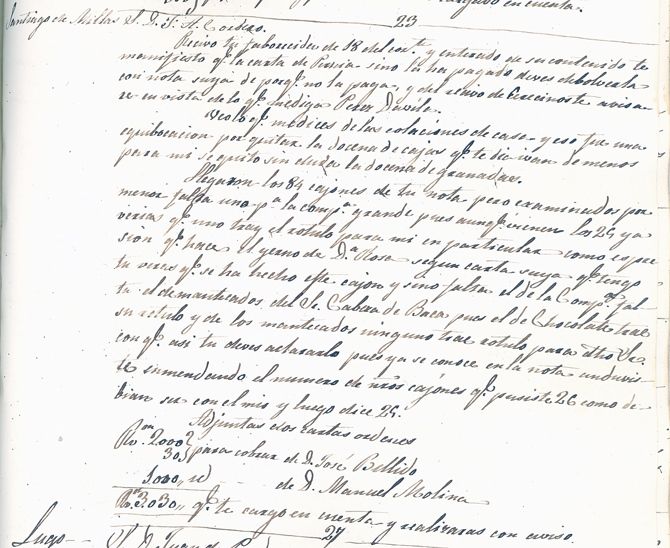 cargado en cuenta.
23
Santiago de Millas S. D. S. A. Cordero.
Recivo tu faborecida de 18 del cont.e y enterado de su contenido te
manifiesto q.e la carta de Persia sino la ha pagado deves debolverla
con nota suya de porq.e no la paga, y del recivo de
re en vista de lo q.e me diga Perez Davila.
Veo lo q.e me dices de las colaciones de casa y eso fue una
equibocacion por quitar la docena de cajas q.e te dice ivan de menos
para mi se quito sin duda la docena de granadas.
Llegaron los 84 cajones de tu nota pero examinados por
menor falta uno p.a la comp.a grande pues aunq.e vienen los 25 ya
verias q.e uno tray el rotulo para mi en particular como espre
sion q.e hace el yerno de D.a Rosa segun carta suya q.e tengo
tu veras q.e se ha hecho este cajon y sino falta el de la Comp.a fal
ta el de mantecados del S. Cabeza de Baca pues el de Chocolate trae
su rotulo y de los mantecados ninguno trae rotulo para dho Sr.
con q.e asi tu deves aclararlo pues ya se conoce en la nota anduvis
te enmendando el numero de nros cajones q.e pusiste 26 como de
bian ser con el mio y luego dice 25.
Adjuntas dos cartas ordenes
Rv.on 2000
30 para cobrar de D. José Bellido
1.000,, id de D. Manuel Molina
Rv.on 3.030,, q.e te cargo en cuenta y realizaras con aviso.
27
Lugo S. D. Juan